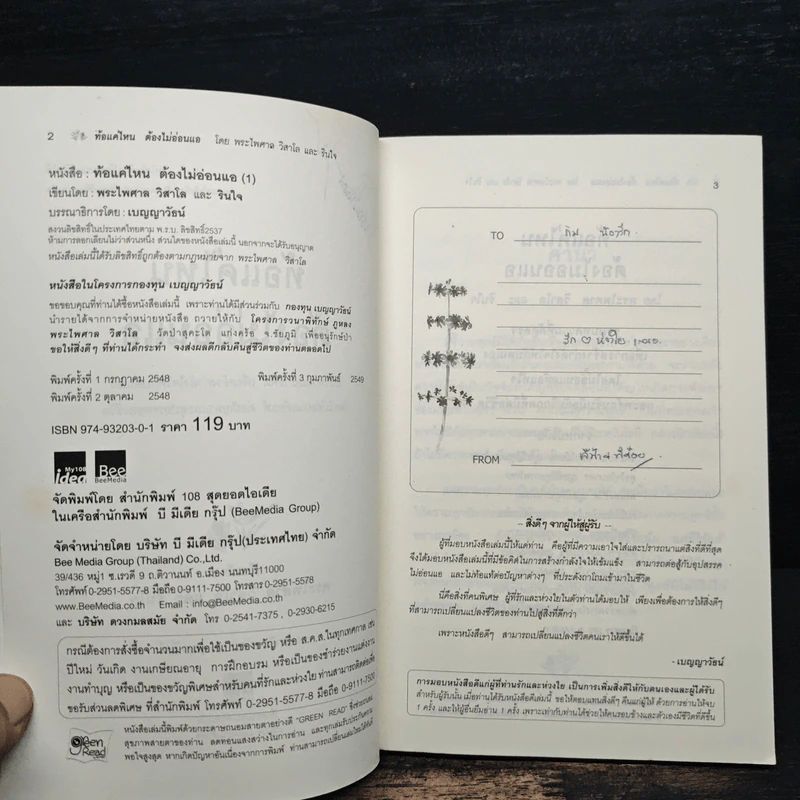 2 ท้อแค่ไหน ต้องไม่อ่อนแอ โดย พระไพศาล วิสาโล และ รินใจ
หนังสือ : ท้อแค่ไหน ต้องไม่อ่อนแอ (1)
เขียนโดย : พระไพศาล วิสาโล และ รินใจ
บรรณาธิการโดย : เบญญาวัธน์
สงวนลิขสิทธิ์ในประเทศไทยตาม พ.ร.บ. ลิขสิทธิ์2537
ห้ามการลอกเลียนไม่ว่าส่วนหนึ่ง ส่วนใดของหนังสือเล่มนี้ นอกจากจะได้รับอนุญาต
หนังสือเล่มนี้ได้รับลิขสิทธิ์ถูกต้องตามกฎหมายจาก พระไพศาล วิสาโล
หนังสือในโครงการกองทุน เบญญาวัธน์
ขอขอบคุณที่ท่านได้ซื้อหนังสือเล่มนี้ เพราะท่านได้มีส่วนร่วมกับ กองทุน เบญญาวัธน์
นำรายได้จากการจำหน่ายหนังสือ ถวายให้กับ โครงการวนาพิทักษ์ ภูหลง
พระไพศาล วิสาโล วัดป่าสุคะโต แก่งคร้อ จ.ชัยภูมิ เพื่ออนุรักษ์ป่า
ขอให้สิ่งดีๆ ที่ท่านได้กระทำ จงส่งผลดีกลับคืนสู่ชีวิตของท่านตลอดไป
พิมพ์ครั้งที่ 1 กรกฎาคม 2548 พิมพ์ครั้งที่ 3 กุมภาพันธ์ 2549
พิมพ์ครั้งที่ 2 ตุลาคม 2548
ISBN 974-93203-0-1 ราคา 119 บาท
My108 idea Bee BeeMedia
จัดพิมพ์โดย สำนักพิมพ์ 108 สุดยอดไอเดีย
ในเครือสำนักพิมพ์ บี มีเดีย กรุ๊ป (BeeMedia Group)
จัดจำหน่ายโดย บริษัท บี มีเดีย กรุ๊ป(ประเทศไทย) จำกัด
Bee Media Group (Thailand) Co.,Ltd.
39/436 หมู่1 ซ.เรวดี 9 ถ.ติวานนท์ อ.เมือง นนทบุรี11000
โทรศัพท์ 0-2951-5577-8 มือถือ 0-9111-7500 โทรสาร 0-2951-5578
www.BeeMedia.co.th Email : info@BeeMedia.co.th
และ บริษัท ดวงกมลสมัย จำกัด โทร 0-2541-7375 , 0-2930-6215
กรณีต้องการสั่งซื้อจำนวนมากเพื่อใช้เป็นของขวัญ หรือ ส.ค.ส.ในทุกเทศกาล เช่น
ปีใหม่ วันเกิด งานเกษียณอายุ การฝึกอบรม หรือเป็นของชำร่วยงานแต่งงาน
งานทำบุญ หรือเป็นของขวัญพิเศษสำหรับคนที่รักและห่วงใย ท่านสามารถติดต่อเพื่อ
ขอรับส่วนลดพิเศษ ที่สำนักพิมพ์ โทรศัพท์ 0-2951-5577-8 มือถือ 0-9111-7500
Green Read
หนังสือเล่มนี้พิมพ์ด้วยกระดาษถนอมสายตาอย่างดี "GREEN READ" ซึ่งช่วยถนอม
สุขภาพสายตาของท่าน ลดทอนแสงสว่างในการอ่าน และทุกเล่มรับประกันความ
พอใจสูงสุด หากเกิดปัญหาอันเนื่องจากการพิมพ์ ท่านสามารถเปลี่ยนเล่มใหม่ได้ทันที
3
TO
รัก ♡ ห่วงใย เสมอ.
FROM
- สิ่งดีๆ จากผู้ให้สู่ผู้รับ --
ผู้ที่มอบหนังสือเล่มนี้ให้แด่ท่าน คือผู้ที่มีความเอาใจใส่และปรารถนาแต่สิ่งที่ดีที่สุด
จึงได้มอบหนังสือเล่มนี้ที่มีข้อคิดในการสร้างกำลังใจให้เข้มแข็ง สามารถต่อสู้กับอุปสรรค
ไม่อ่อนแอ และไม่ท้อแท้ต่อปัญหาต่างๆ ที่ประดังถาโถมเข้ามาในชีวิต
นี่คือสิ่งที่คนพิเศษ ผู้ที่รักและห่วงใยในตัวท่านได้มอบให้ เพียงเพื่อต้องการให้สิ่งดีๆ
ที่สามารถเปลี่ยนแปลงชีวิตของท่านไปสู่สิ่งที่ดีกว่า
เพราะหนังสือดีๆ สามารถเปลี่ยนแปลงชีวิตคนเราให้ดีขึ้นได้
- เบญญาวัธน์
การมอบหนังสือดีแก่ผู้ที่ท่านรักและห่วงใย เป็นการเพิ่มสิ่งดีให้กับตนเองและผู้ได้รับ
สำหรับผู้รับนั้น เมื่อท่านได้รับหนังสือดีเล่มนี้ ขอให้ตอบแทนสิ่งดีๆ คืนแก่ผู้ให้ ด้วยการอ่านให้จบ
1 ครั้ง และให้ผู้อื่นยืมอ่าน 1 ครั้ง เพราะเท่ากับท่านได้ช่วยให้คนรอบข้างและตัวเองมีชีวิตที่ดีขึ้น